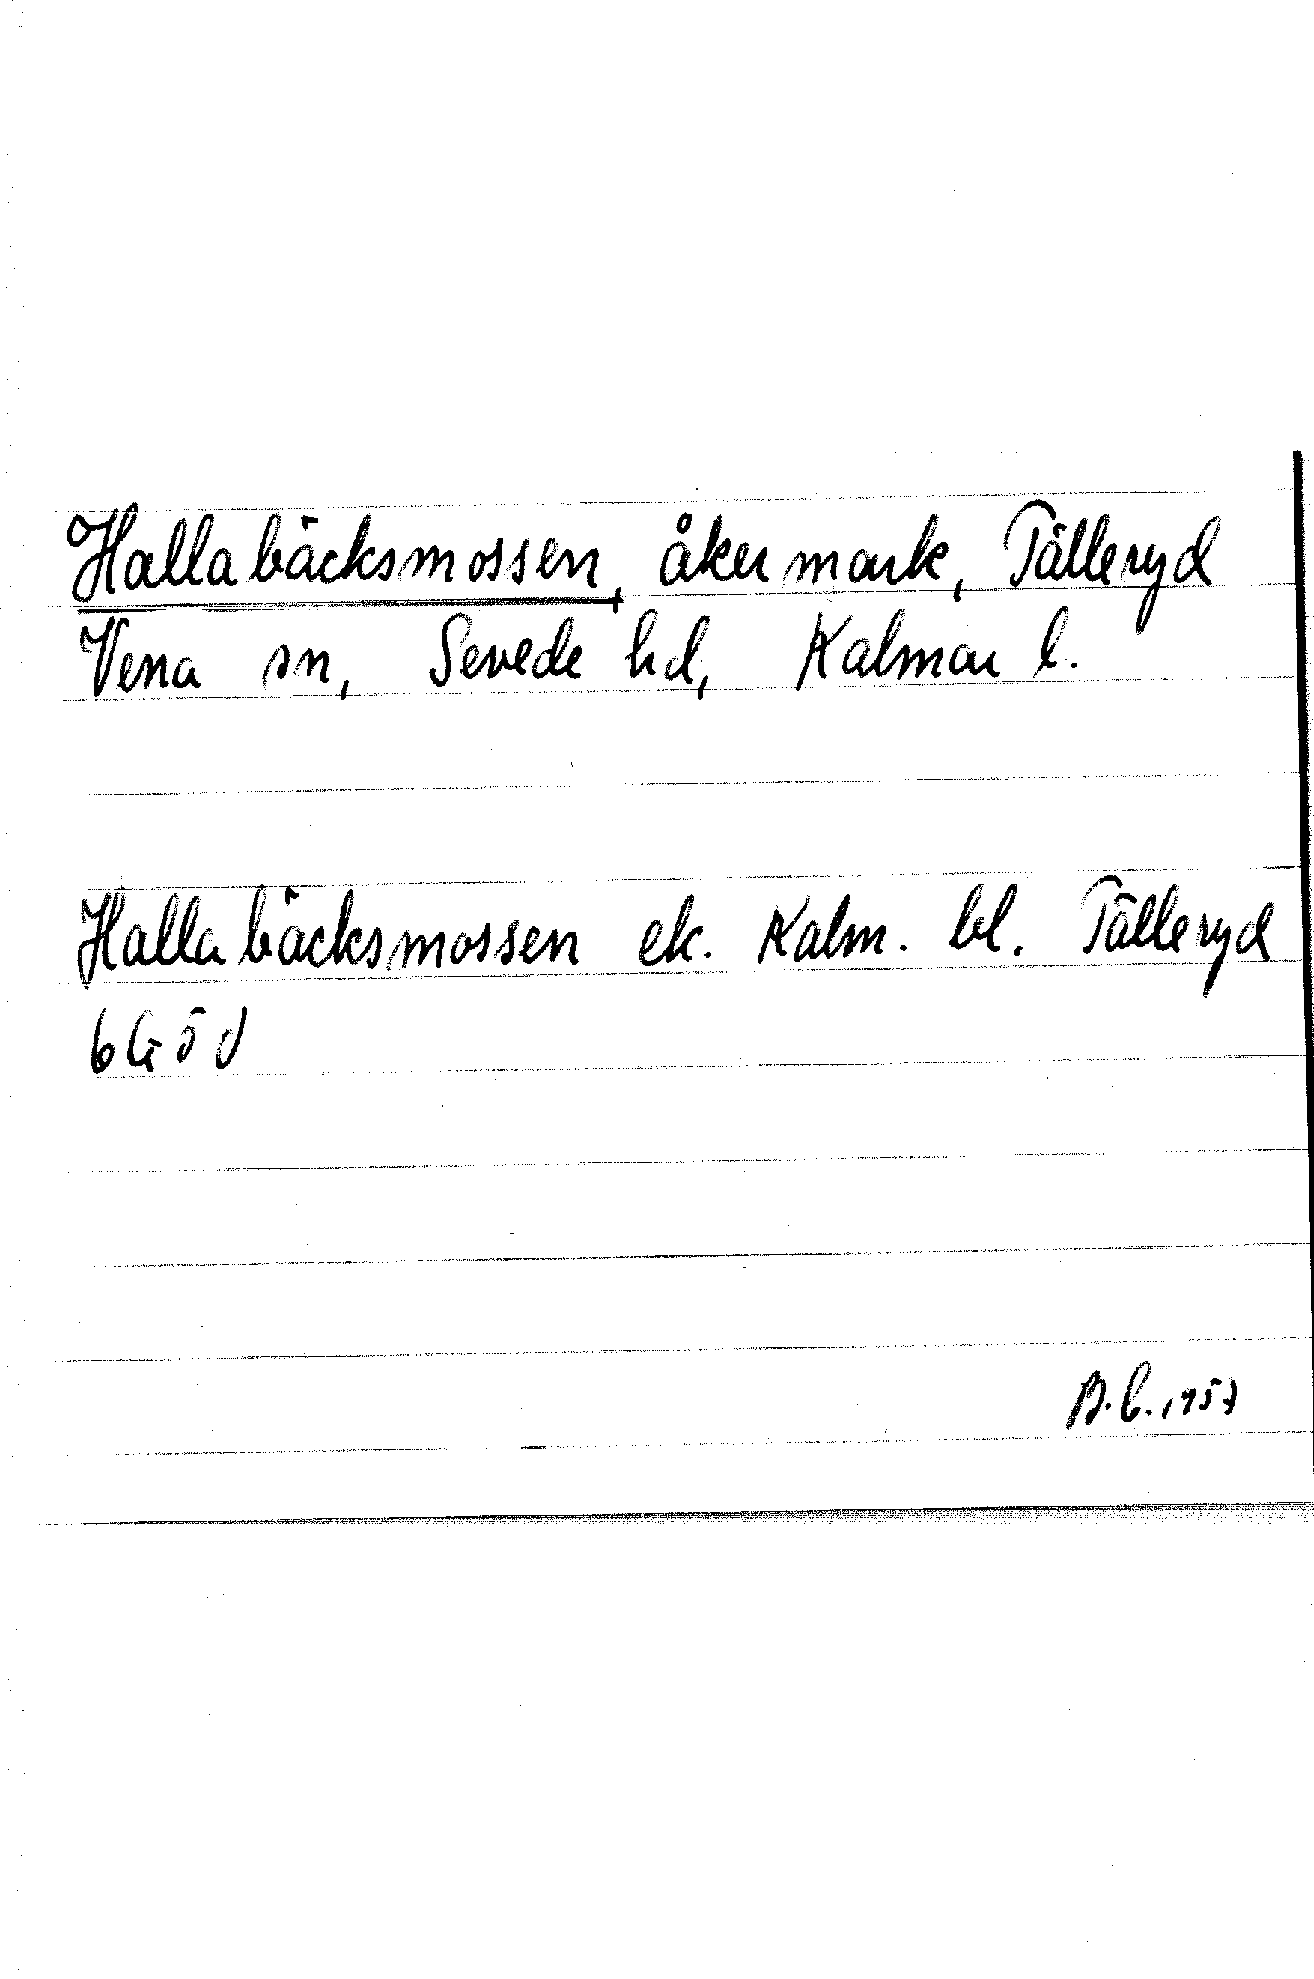 Hallabäcksmossen, åkermark, Tälleryd
Vena sn, Sevede hd, Kalmar l.
Hallabäcksmossen ek. Kalm. bl. Tälleryd
6G5d
B.C. 1957